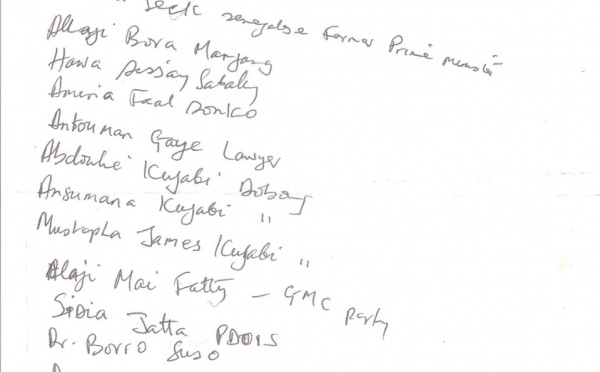 Seck senegalse Former Prime
Alhaji Bora Manjang
Hawa Sissay Sabally
Amina Faal Sonko
Antouman Gaye Lawyer
Abdoulie Kujabi Dobong
Ansumana Kujabi "
Mustapha James Kujabi "
Alaji Mai Fatty - GMC party
Sidia Jatta PDOIS
Dr. Borro Suso